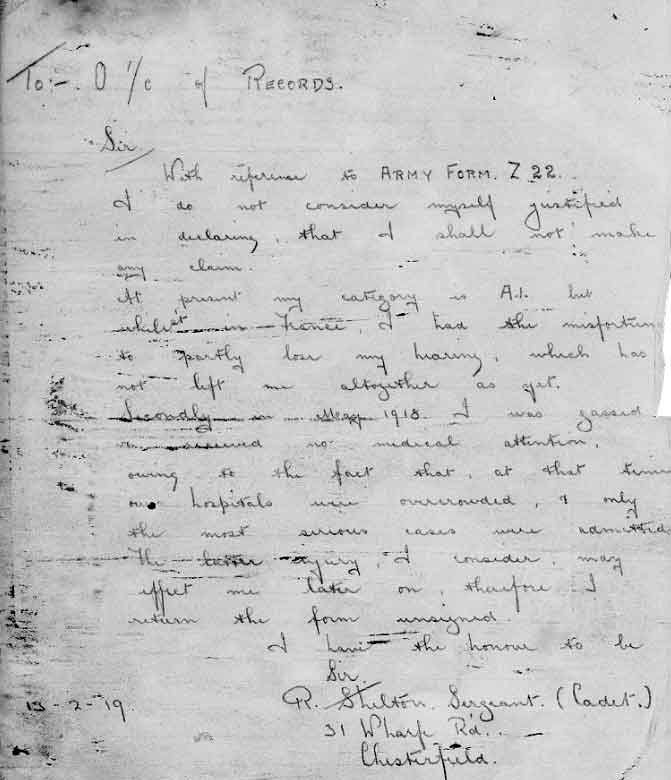 To:- O i/c of RECORDS.
Sir
With reference to ARMY FORM. Z 22.
I do not consider myself justified
in declaring, that I shall not make
any claim.
At present my category is A.1. but
whilst in France, I had the misfortune
to partly lose my hearing, which has
not left me altogether as yet.
Secondly in May 1918. I was gassed
received no medical attention,
owing to the fact that, at that time
our hospitals were overcrowded, & only
the most serious cases were admitted.
The latter injury, I consider, may
effect me later on, therefore I
return the form unsigned.
I have the honour to be
Sir.
R. Shelton. Sergeant. (Cadet.)
13-2-19. 31 Wharf Rd.
Chesterfield.